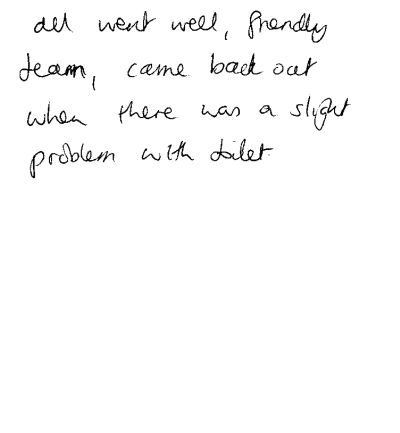 all went well, friendly
team, came back out
when there was a slight
problem with toilet